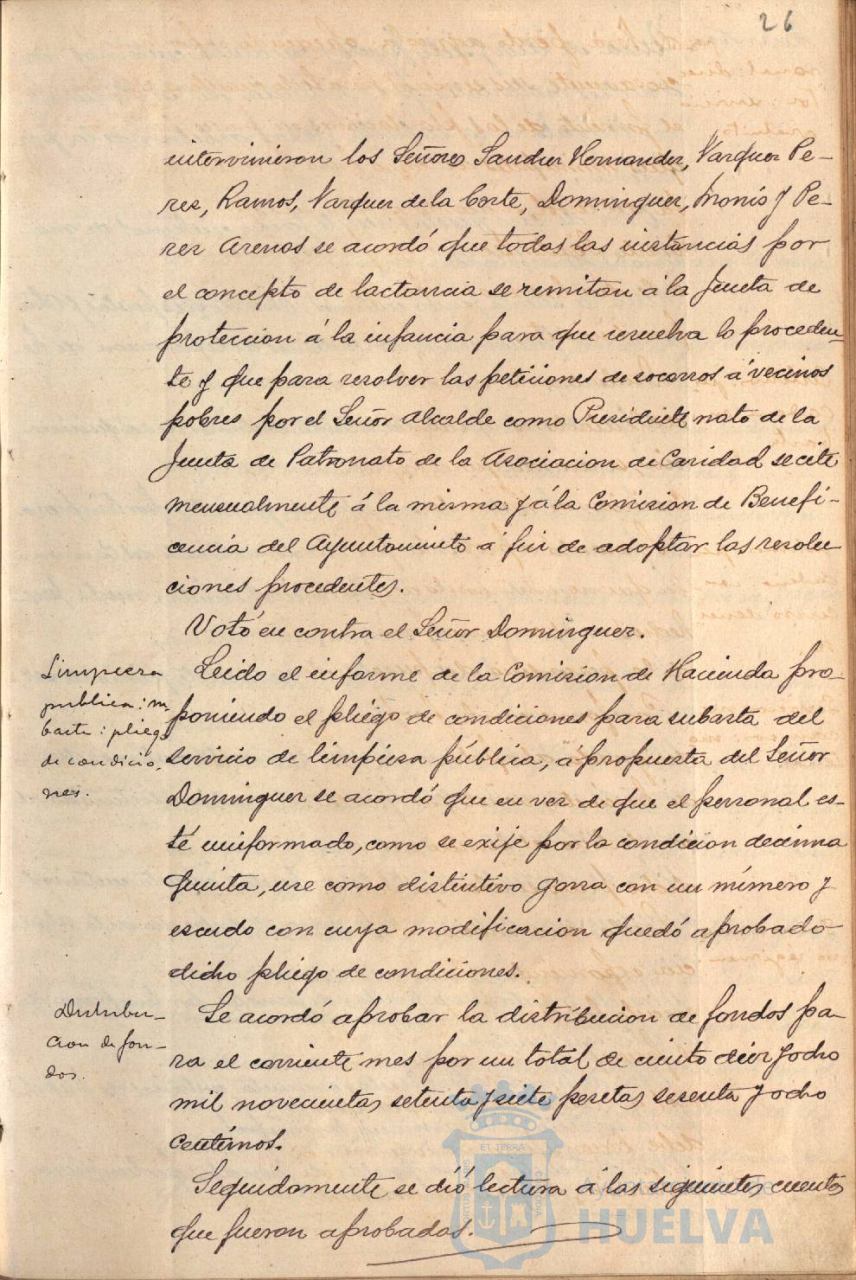 26
intervinieron los Señores Sanchez Hernandez, Vazquez Pe-
rez, Ramos, Vazquez de la Corte, Dominguez, Monís y Pe-
rez Arenas se acordó que todas las instancias por
el concepto de lactancia se remitan á la Junta de
protección á la infancia para que resuelva lo proceden-
te y que para resolver las peticiones de socorros á vecinos
pobres por el Señor Alcalde como Presidente nato de la
Junta de Patronato de la Asociacion de Caridad se cite
mensualmente á la misma y á la Comision de Benefi-
cencia del Ayuntamiento á fin de adoptar las resolu-
ciones procedentes.
Votó en contra el Señor Dominguez.
Limpieza
publica: su
basta: pliego
de condicio-
nes.
Leido el informe de la Comision de Hacienda pro-
poniendo el pliego de condiciones para subasta del
servicio de limpieza pública, á propuesta del Señor
Dominguez se acordó que en vez de que el personal es-
té uniformado, como se exije por la condicion decima
quinta, use como distintivo gorra con un número y
escudo con cuya modificacion quedó aprobado
dicho pliego de condiciones.
Distribu-
cion de fon-
dos.
Se acordó aprobar la distribucion de fondos pa-
ra el corriente mes por un total de ciento diez y ocho
mil novecientas setenta y siete pesetas sesenta y ocho
centimos.
Seguidamente se dió lectura á las siguientes cuentas
que fueron aprobadas.
HUELVA